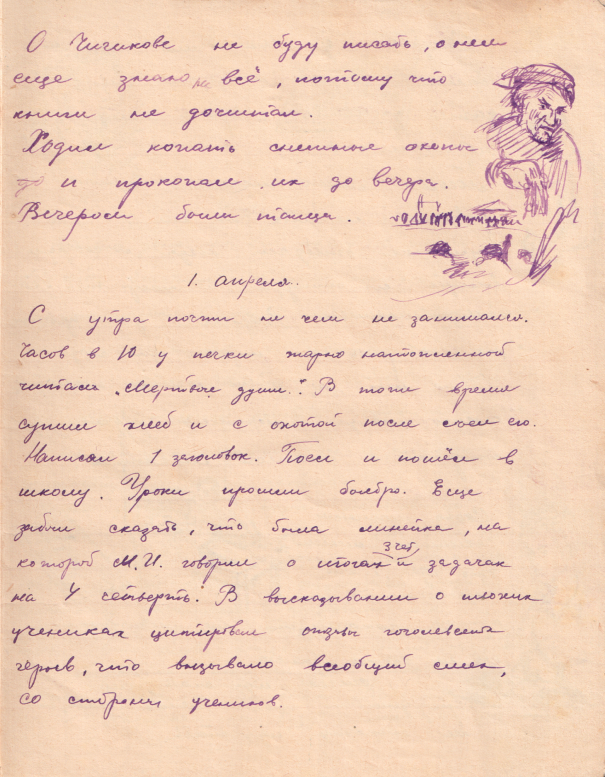 О Чичикове не буду писать, о нем
еще знаю не всё, потому что
книги не дочитал.
Ходил копать снежные окопы
до и прокопал их до вечера.
Вечером были танцы.
1. апреля.
С утра почти не чем не занимался.
Часов в 10 у печки жарко натопленной
читал „Мертвые души". В тоже время
сушил хлеб и с охотой после съел его.
Написал 1 заголовок. Поел и пошёл в
школу. Уроки прошли бодро. Еще
забыл сказать, что была линейка, на
которой М.И. говорил о итогах 3 чет. и задачах
на 4 четверть. В высказывании о плохих
учениках цитировал отзывы гоголевских
героев, что вызывало всеобщий смех,
со стороны учеников.